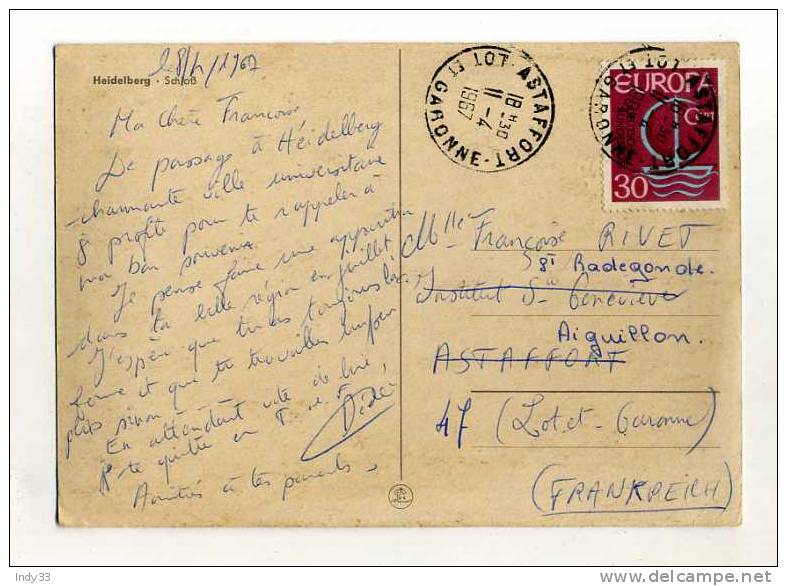 Heidelberg · Schloß
Ma Chère Françoise
De passage à Heidelberg
charmante ville universitaire
je profite pour te rappeler à
mon bon souvenir.
Je pense faire une apparition
dans ta belle région en juillet.
J'espère que tu as toujours la
forme et que tu travailles un peu
plus sinon
En attendant de lire,
je te quitte en
Amitiés à tes parents
ASTAFFORT
LOT ET GARONNE
18 H 30
11 - 4
1967
EUROPA
CEPT
30
Mlle Françoise RIVET
St Radegonde.
Institut Ste Geneviève
Aiguillon.
ASTAFFORT
47 (Lot-et-Garonne)
(FRANKREICH)
Indy33
delcampe.net